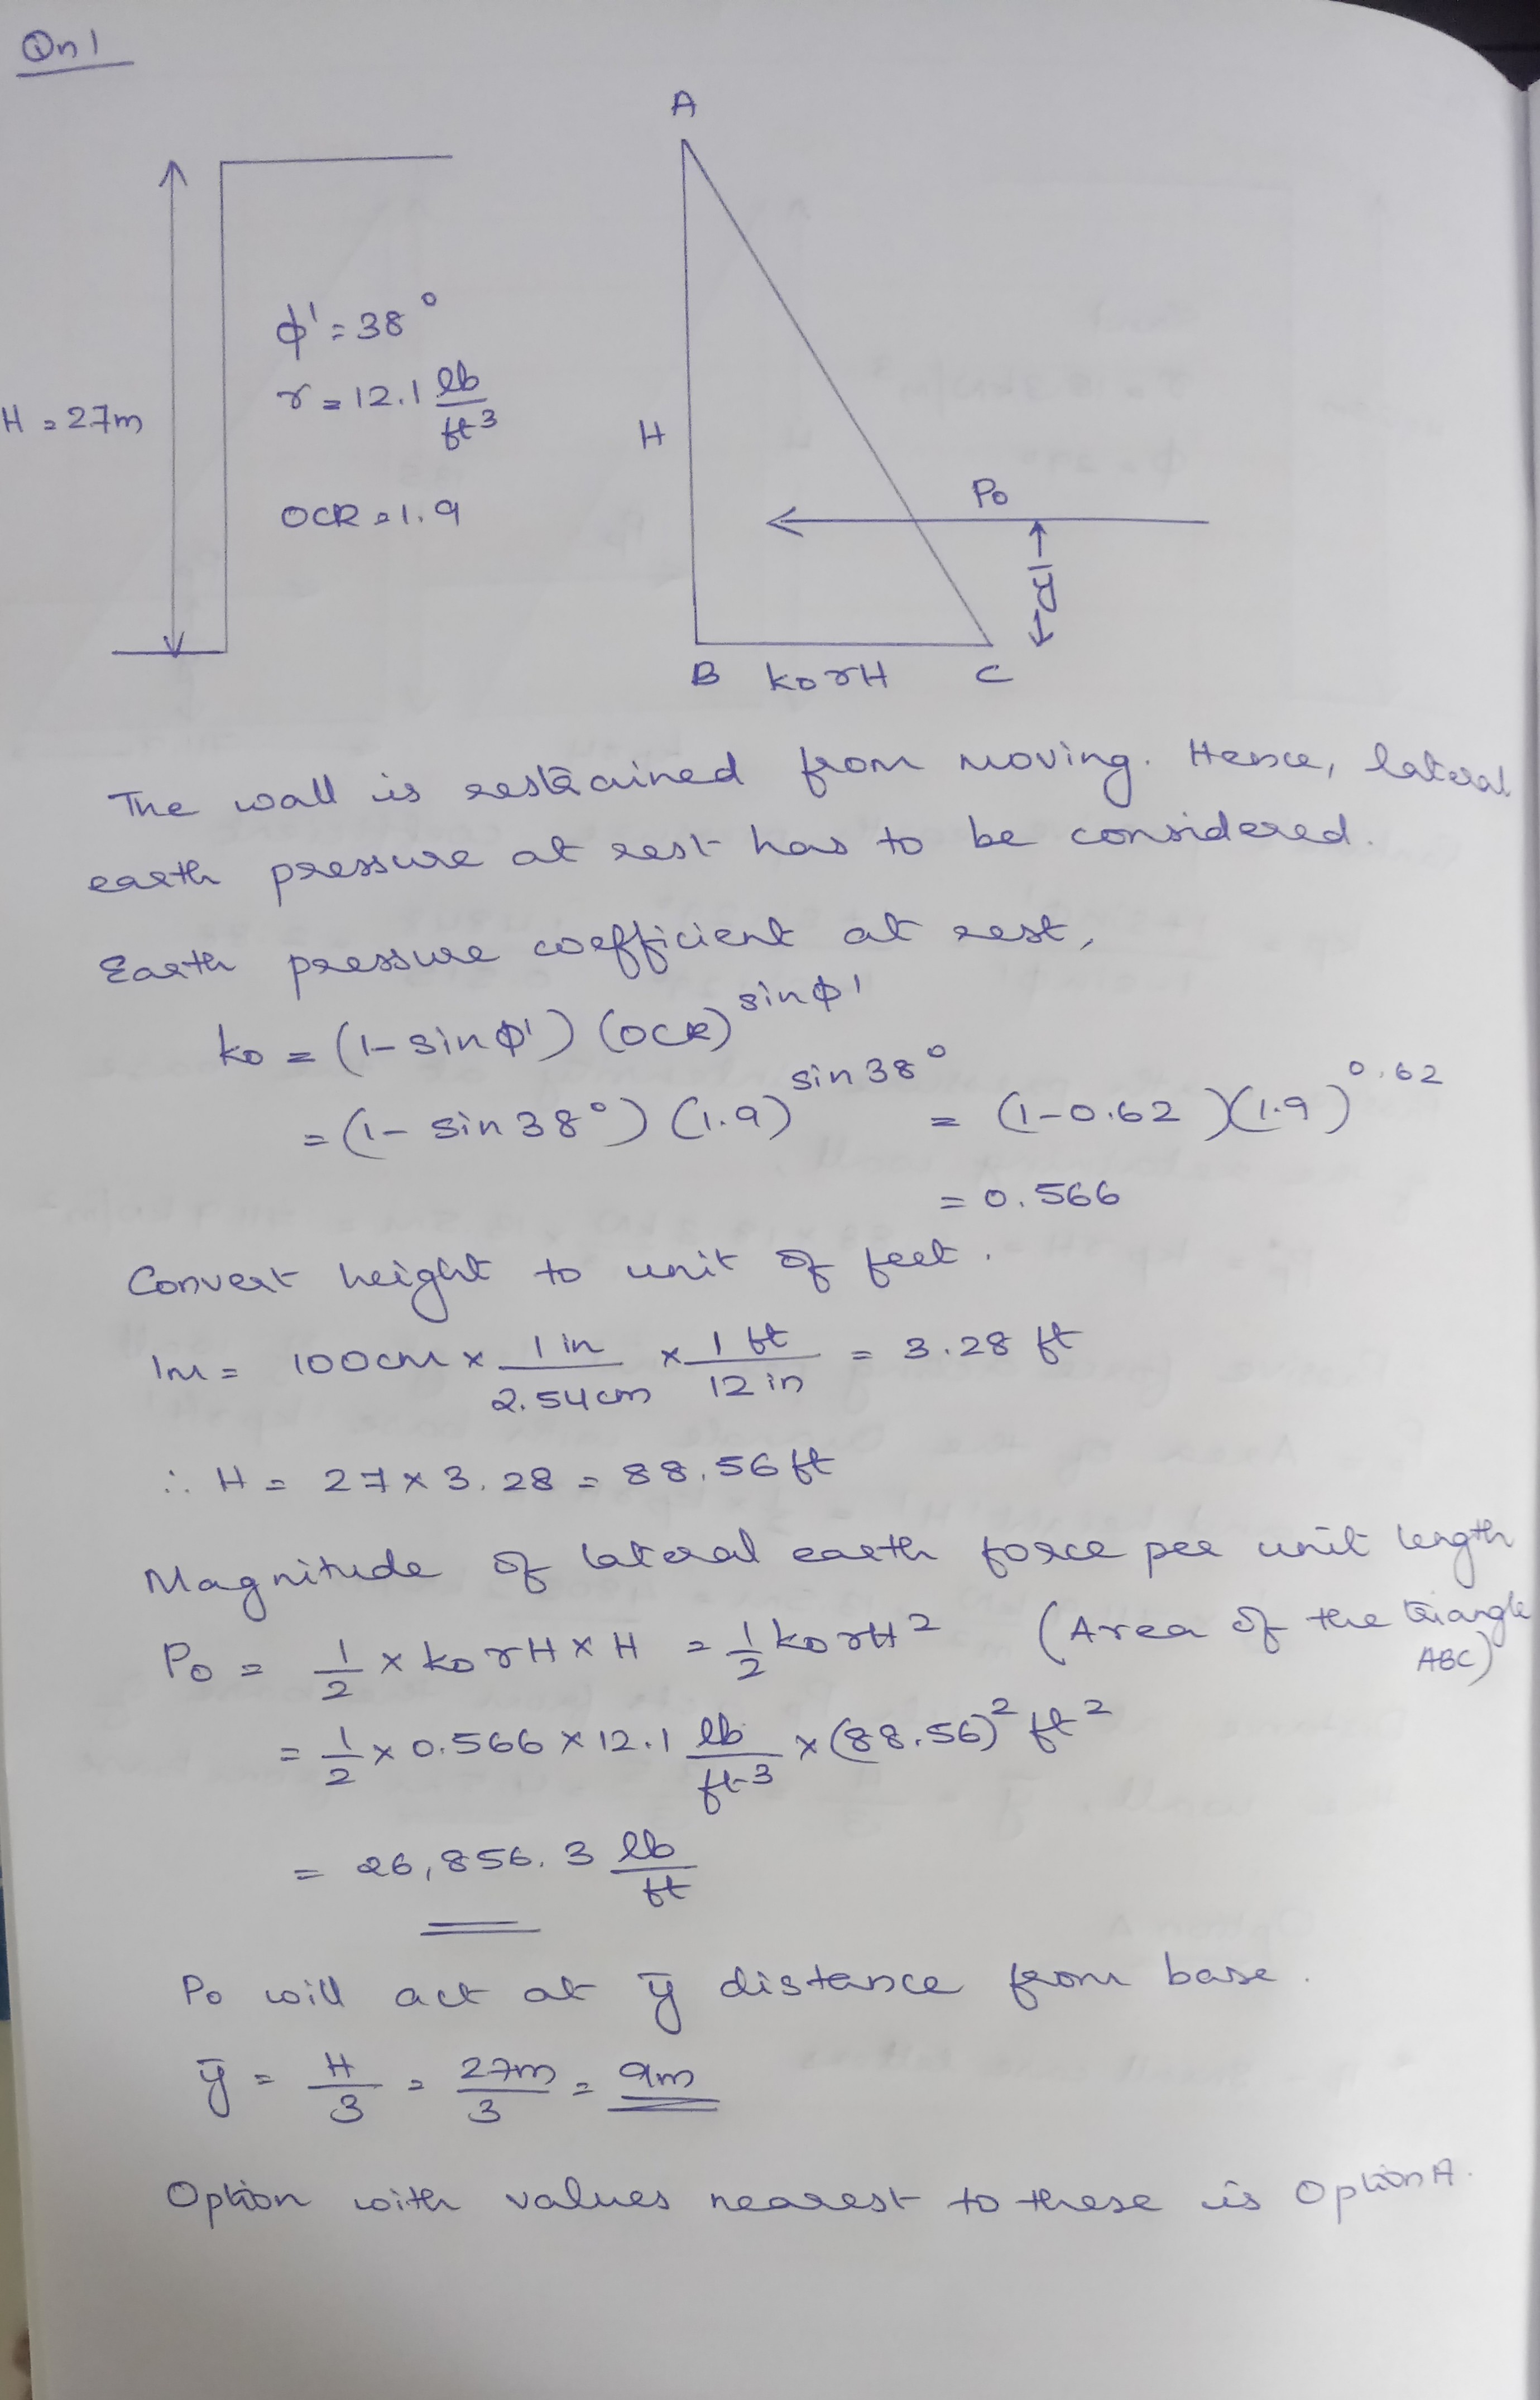 Qn 1
A
H = 27m
φ' = 38°
γ = 12.1 lb/ft³
OCR = 1.9
H
P₀
ȳ
B k₀γH C
The wall is restrained from moving. Hence, lateral
earth pressure at rest has to be considered.
Earth pressure coefficient at rest,
k₀ = (1-sinφ') (OCR)^sinφ'
= (1- sin38°) (1.9)^sin38° = (1-0.62)(1.9)^0.62
= 0.566
Convert height to unit of feet.
1m = 100cm × 1 in/2.54cm × 1 ft/12 in = 3.28 ft
∴ H = 27 × 3.28 = 88.56 ft
Magnitude of lateral earth force per unit length
P₀ = 1/2 × k₀γH × H = 1/2 k₀γH² (Area of the triangle ABC)
= 1/2 × 0.566 × 12.1 lb/ft³ × (88.56)² ft²
= 26,856.3 lb/ft
P₀ will act at ȳ distance from base.
ȳ = H/3 = 27m/3 = 9m
Option with values nearest to these is Option A.